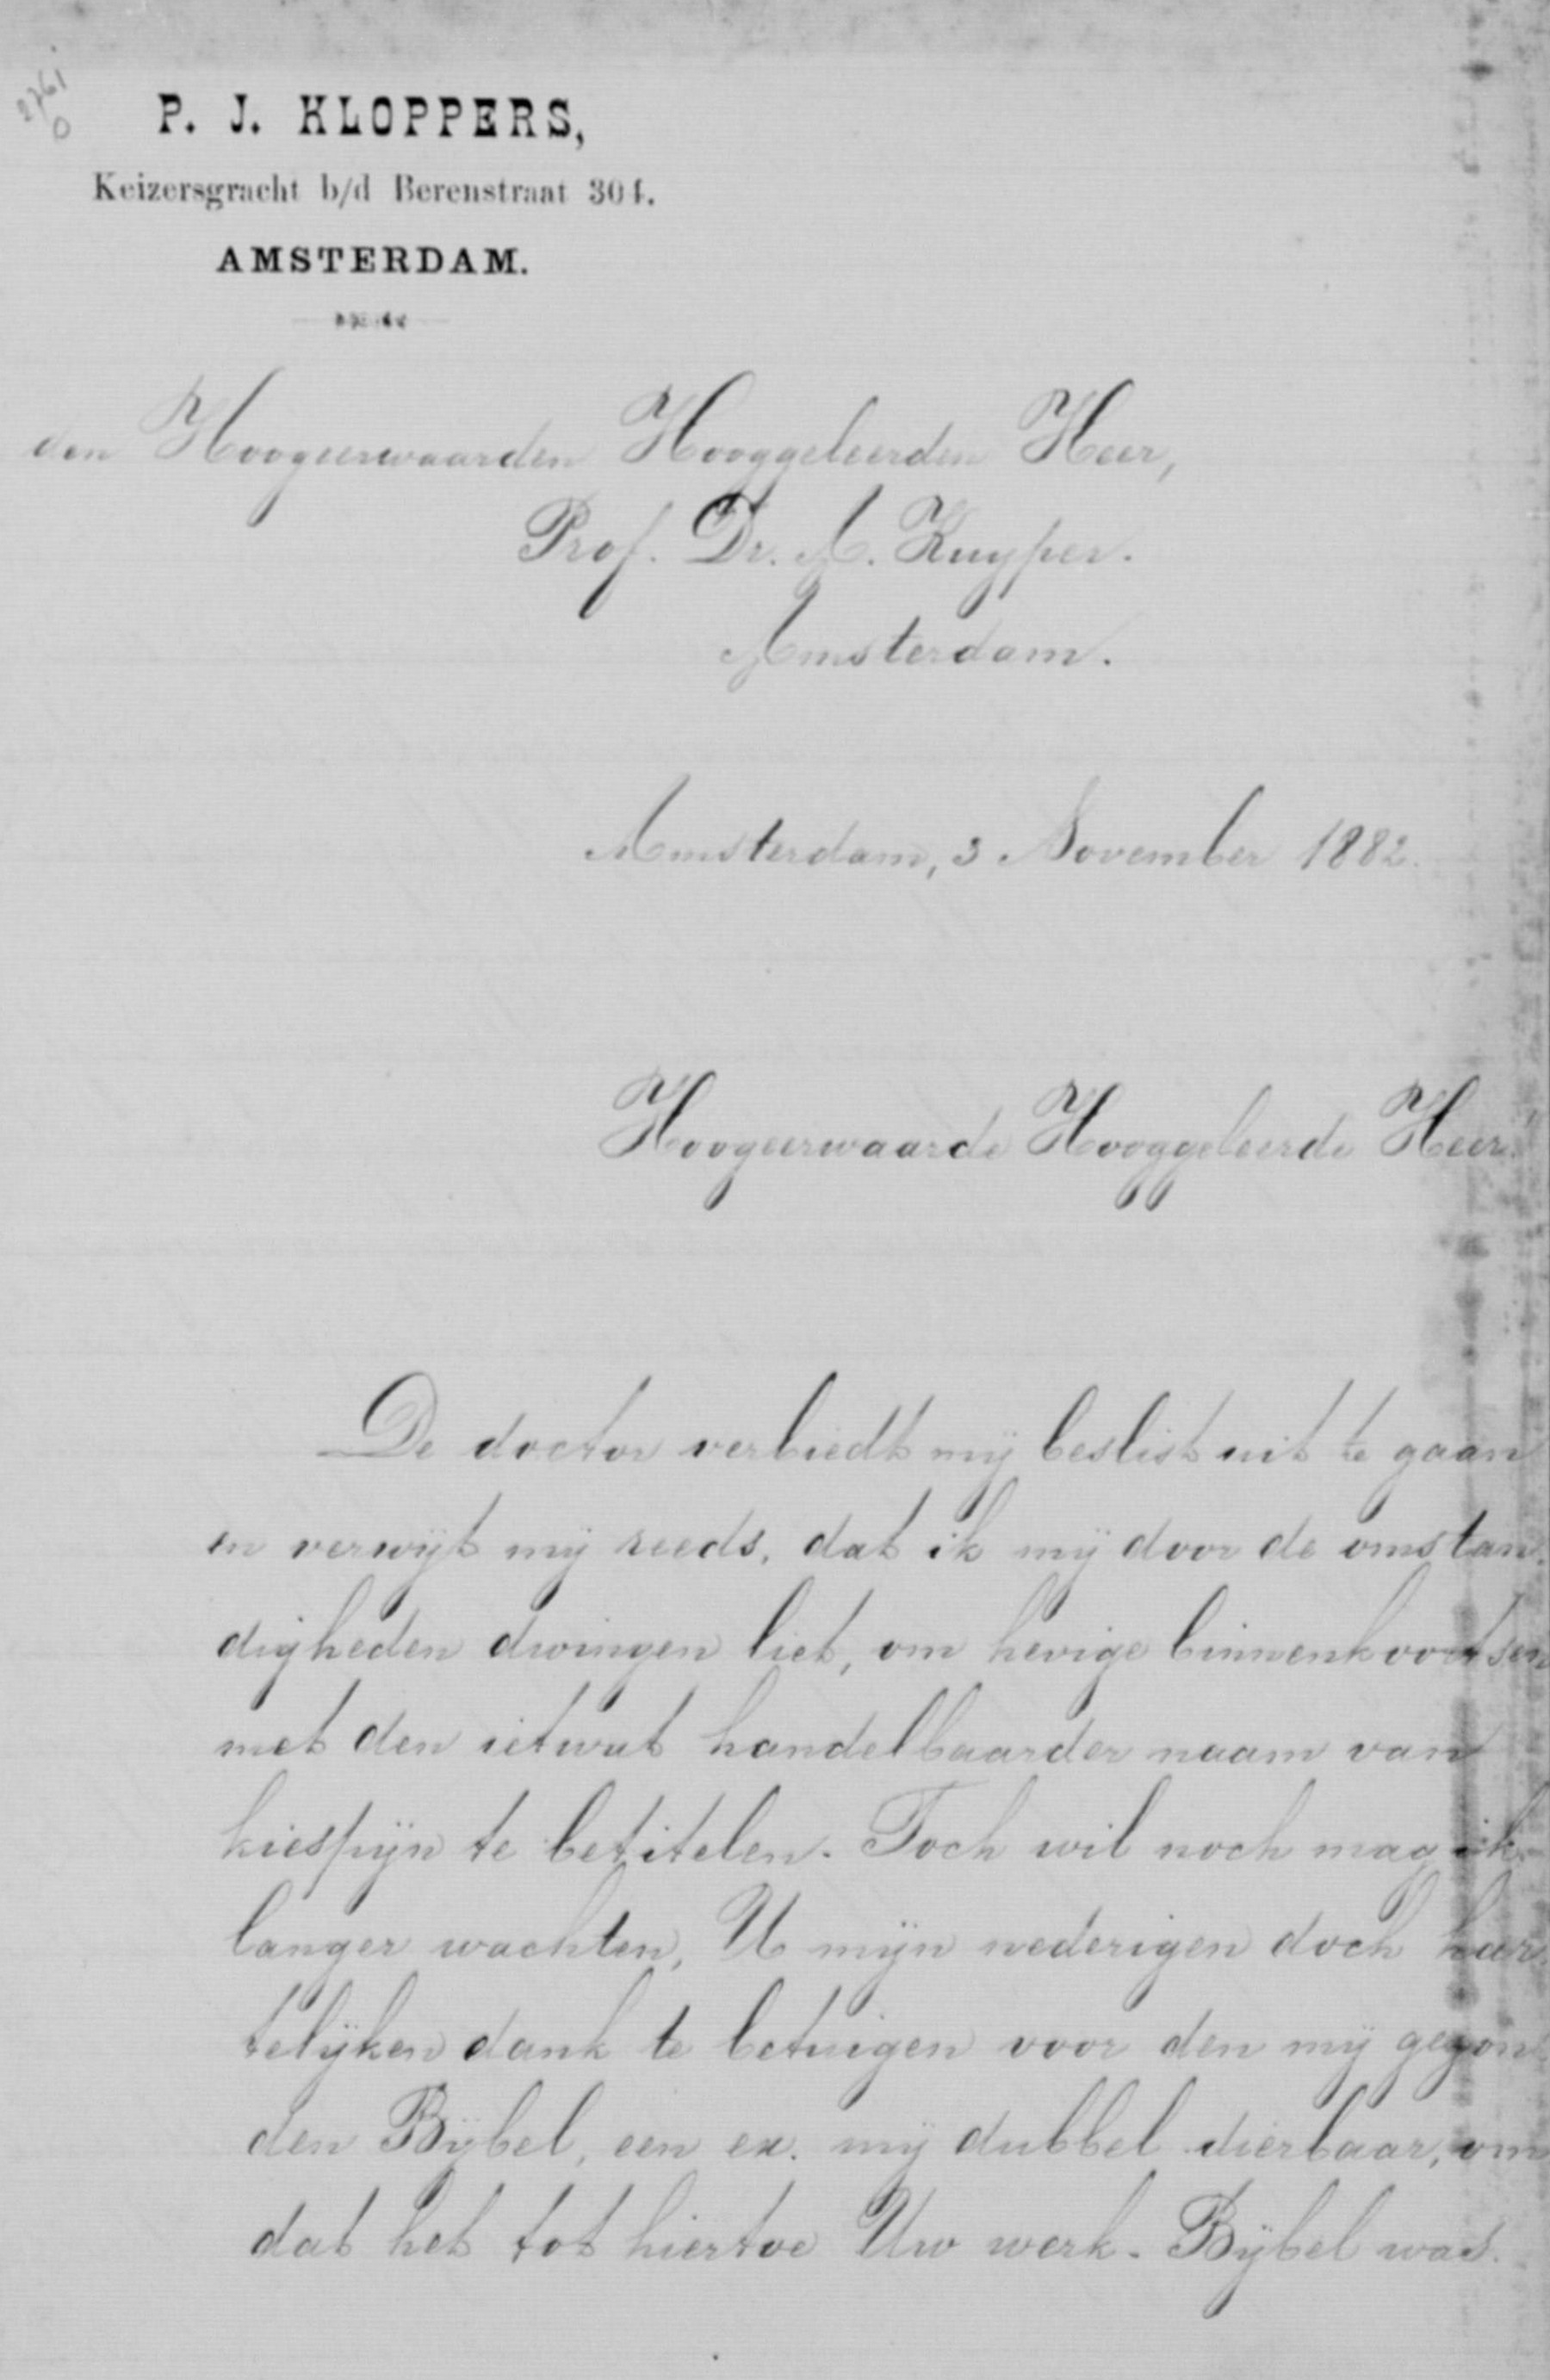 2761
0
P. J. KLOPPERS,
Keizersgracht b/d Berenstraat 304.
AMSTERDAM.
den Hoogeerwaarden Hooggeleerden Heer,
Prof. Dr. A. Kuyper.
Amsterdam.
Amsterdam, 3 November 1882.
Hoogeerwaarde Hooggeleerde Heer,
De doctor verbiedt mij beslist uit te gaan
en verwijt mij reeds, dat ik mij door de omstan-
digheden dwingen liet, om hevige binnenkoortsen
met den ietwat handelbaarder naam van
kiespijn te betitelen. Toch wil noch mag ik
langer wachten, U mijn nederigen doch har-
telijken dank te betuigen voor den mij gezon-
den Bijbel, een ex. mij dubbel dierbaar, om
dat het tot hiertoe Uw werk-Bijbel was.